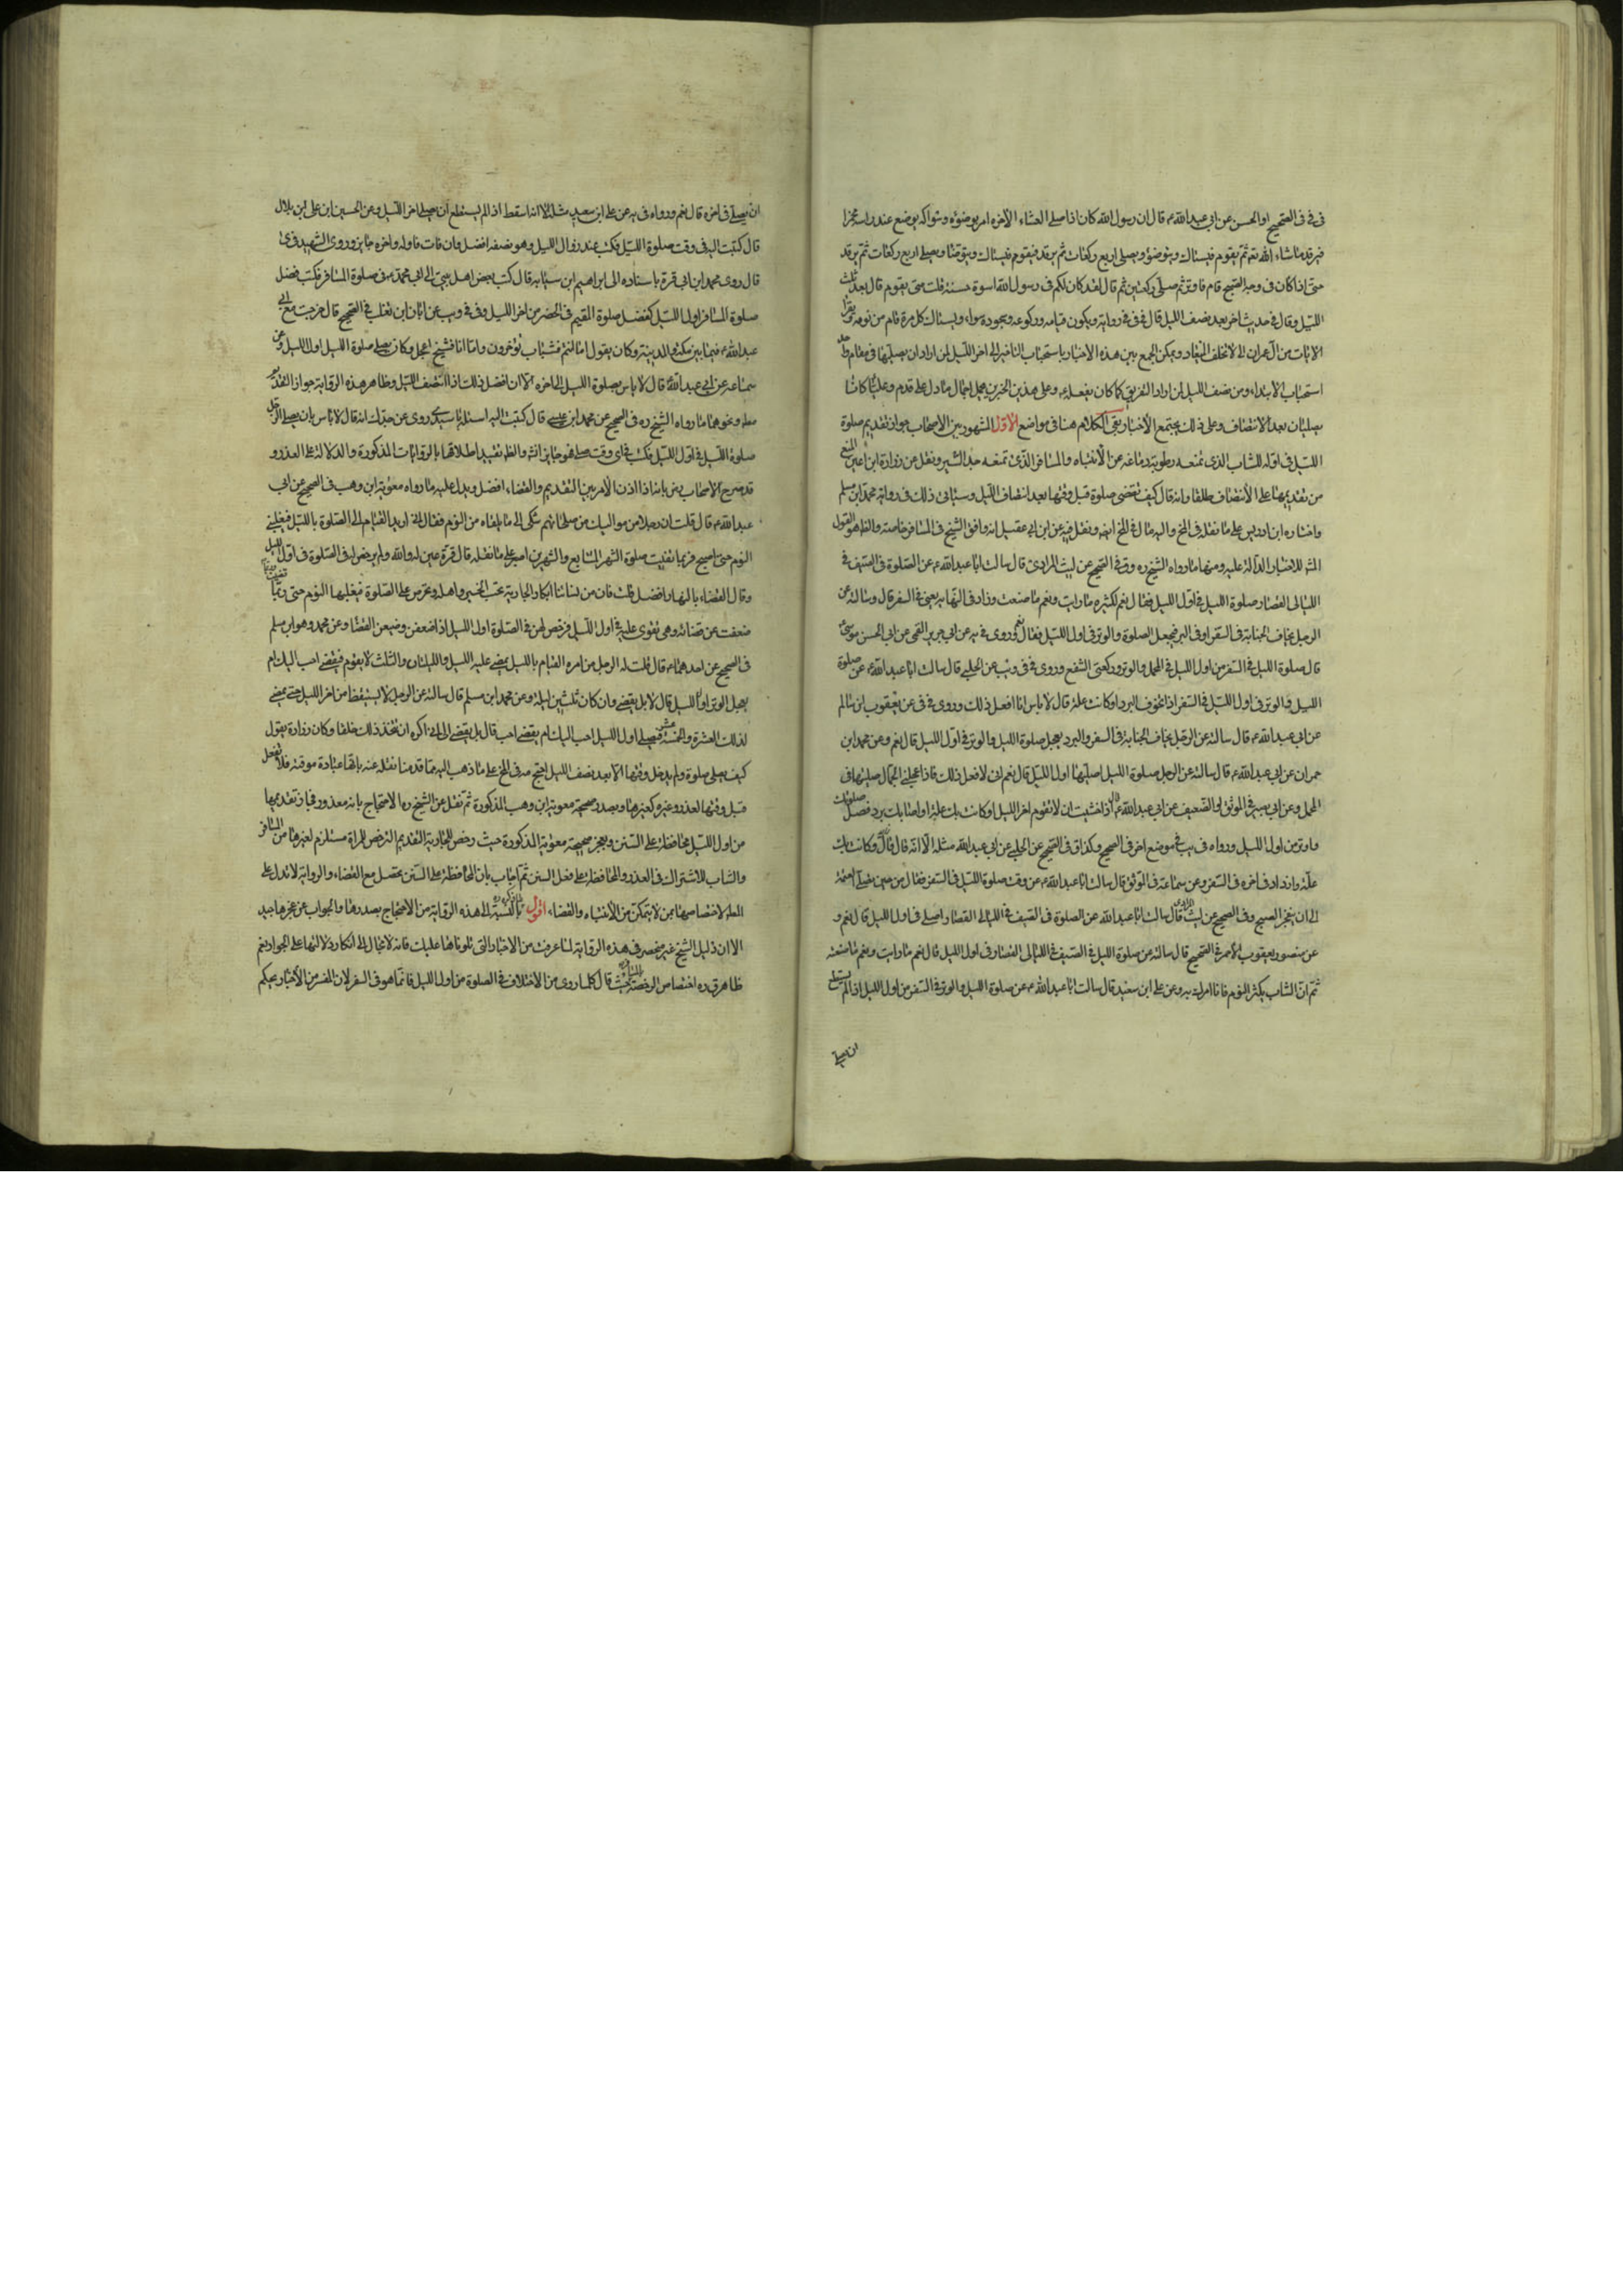 فى فى الصحيح او الحسن عن ابى عبد الله ع قال ان رسول الله كان اذا صلى العشاء الآخرة امر بوضوئه وسواكه يوضع عند راسه مخمرا
فيرقد ما شاء الله ثم يقوم فيستاك ويتوضؤ ويصلى اربع ركعات ثم يرقد فيقوم فيستاك ويتوضأ ويصلى اربع ركعات ثم يرقد
حتى اذا كان فى وجه الصبح قام فاوتر ثم صلى ركعتين ثم قال لقد كان لكم فى رسول الله اسوة حسنة قلت متى يقوم قال بعد ثلث
الليل وقال فى حديث اخر بعد نصف الليل قال فى فى رواية ويكون قيامه وركوعه وسجوده سواء ويستاك كل مرة قام من نومه ويقرأ
الآيات من آل عمران الى لا تخلف الميعاد ويمكن الجمع بين هذه الاخبار باستحباب التاخير الى اخر الليل لمن اراد ان يصليها فى مقام واحد
استحباب الابتداء من نصف الليل لمن اراد التفريق كما كان يفعله ع وعلى هذين الخبرين يحمل اجمال ما دل على قدم وعلينا كانا
يصليان بعد الانتصاف وعلى ذلك يجتمع الأخبار بقى الكلام هنا فى مواضع الاول المشهور بين الاصحاب جواز تقديم صلوة
الليل فى اوله للشاب الذى تمنعه رطوبة دماغه عن الانتباه والمسافر الذى تمنعه جد السير ونقل عن زرارة ابن اعين المنع
من تقديمها على الانتصاف مطلقا وانه قال كيف تقضى صلوة قبل وقتها بعد انتصاف الليل وسيأتى ذلك فى رواية محمد ابن مسلم
واختاره ابن ادريس على ما نقله فى المخ واليه مال فى المخ ايضا ونقل فيه عن ابن ابى عقيل انه وافق الشيخ فى المسافر خاصة والظ هو القول
المش للاخبار الدالة عليه ومنها ما رواه الشيخ ره وق فى الصحيح عن ليث المرادى قال سالت ابا عبد الله ع عن الصلوة فى الصيف فى
الليالى القصار صلوة الليل فى اول الليل فقال نعم ما رايت ونعم ما صنعت وزاد فى الفقيه يعنى فى السفر قال وسالته عن
الرجل يخاف الجنابة فى السفر او فى البرد فيعجل الصلوة والوتر فى اول الليل فقال نعم وروى فى يه عن ابى جرير القمى عن ابى الحسن موسى
قال صلوة الليل فى السفر من اول الليل فى المحمل والوتر وركعتى الشفع وروى فى فى ويب عن الحلبى قال سالت ابا عبد الله ع عن صلوة
الليل والوتر فى اول الليل فى السفر اذا تخوف البرد او كانت علة قال لا باس انا افعل ذلك وروى فى فى عن يعقوب ابن سالم
عن ابى عبد الله ع قال سالته عن الرجل يخاف الجنابة فى السفر والبرد يعجل صلوة الليل والوتر فى اول الليل قال نعم وعن محمد ابن
حمران عن ابى عبد الله ع قال سالته عن الرجل صلوة الليل اصليها اول الليل قال نعم انى لافعل ذلك فاذا اعجلنى الجمال صليتها فى
المحمل وعن ابى بصير فى الموثق او الضعيف عن ابى عبد الله ع قال اذا خشيت ان لا تقوم اخر الليل او كانت بك علة او اصابك برد فصل صلوتك
واوتر من اول الليل ورواه فى يب فى موضع اخر فى الصحيح وكذا ق فى الصحيح عن الحلبى عن ابى عبد الله مثله الا انه قال وكانت بك
علة وزاد فى اخره فى السفر وعن سماعة فى الموثق قال سالت ابا عبد الله ع عن وقت صلوة الليل فى السفر فقال من حين يصلى العتمة
الى ان ينفجر الصبح وفى الصحيح عن ليث المرادى قال سالت ابا عبد الله عن الصلوة فى الصيف فى الليالى القصار اصلى فى اول الليل قال نعم و
عن يعقوب الاحمر فى الصحيح قال سالته عن صلوة الليل فى الصيف فى الليالى القصار فى اول الليل قال نعم ما رايت ونعم ما صنعت
ثم ان الشاب يكثر النوم فانا امرك به وعن على ابن سعيد قال سالت ابا عبد الله ع عن صلوة الليل والوتر فى السفر من اول الليل اذا لم يستطع
ان يصلى
ان يصلى فى اخره قال نعم ورواه فى يه عن على ابن سعيد مثله الا انه اسقط اذا لم يستطع ان يصلى اخر الليل وعن الحسين ابن على ابن بلال
قال كتبت اليه فى وقت صلوة الليل فكتب عند زوال الليل وهو نصفه افضل وان فات فاوله واخره جايز وروى الشهيد فى
قال روى محمد ابن ابى قرة باسناده الى ابراهيم ابن سيابه قال كتب بعض اهل بيتى الى ابى محمد ع فى صلوة المسافر فكتب فضل
صلوة المسافر اول الليل كفضل صلوة المقيم فى الحضر من اخر الليل وفى فى ويب عن ابان ابن تغلب فى الصحيح قال خرجت مع ابى
عبد الله ع فيما بين مكة والمدينة وكان يقول اما انتم فشباب تؤخرون واما انا فشيخ اعجل وكان يصلى صلوة الليل اول الليل وعن
سماعة عن ابى عبد الله قال لا باس بصلوة الليل الى اخره الا ان افضل ذلك اذا انتصف الليل وظاهر هذه الرواية جواز التقديم
مط ونحوهما ما رواه الشيخ ره فى الصحيح عن محمد ابن عيسى قال كتبت اليه اسئله يا سيدى روى عن جدك انه قال لا باس بان يصلى الرجل
صلوة الليل فى اول الليل فكتب فى اى وقت صلى فهو جايز انش والظ تقييد اطلاقها بالروايات المذكورة والدلالة على العذر و
قد صرح الاصحاب رض بانه اذا الامر بين التقديم والقضاء افضل ويدل عليه ما رواه معوية ابن وهب فى الصحيح عن ابى
عبد الله ع قال قلت ان رجلا من مواليك من صلحائهم شكى الى ما يلقاه من النوم فقال انى اريد القيام الى الصلوة بالليل فيغلبنى
النوم حتى اصبح فربما قضيت صلوة الشهر المتتابع والشهرين اصبر على ثقله قال قرة عين له والله ولم يرخص له فى الصلوة فى اول الليل
وقال القضاء بالنهار افضل قلت فان من نسائنا ابكارا الجارية تحب الخير واهله وتحرص على الصلوة فيغلبها النوم حتى ربما قضت وربما
ضعفت عن قضائه وهى تقوى عليه فى اول الليل فرخص لهن فى الصلوة اول الليل اذا ضعفن وضيعن القضاء وعن محمد وهو ابن مسلم
فى الصحيح عن احدهما ع قال قلت له الرجل من امره القيام بالليل يمضى عليه الليل والليلتان والثلث لا يقوم فيقضى احب اليك ام
يعجل الوتر اول الليل قال لا بل يقضى وان كان ثلثين ليلة وعن محمد ابن مسلم قال سالته عن الرجل لا يستيقظ من اخر الليل حتى يمضى
لذلك العشر والخمس عشرة فيصلى اول الليل احب اليك ام يقضى قال بل يقضى احب الى انى اكره ان يتخذ ذلك خلقا وكان زرارة يقول
كيف يصلى صلوة ولم يدخل وقتها انما بعد نصف الليل احتج فى المخ على ما ذهب اليه مما قدمنا نقله عنه بانها عبادة موقتة فلا تفعل
قبل وقتها لعذر وغيره كغيرها وبصدر صحيحة معوية ابن وهب المذكورة ثم نقل عن الشيخ ره الاحتجاج بانه معذور فجاز تقديمها
من اول الليل محافظة على السنن وبعجز صحيحة معوية المذكورة حيث رخص للجارية التقديم الترخص للمراة مستلزم لغيرها من المسافر
والشاب للاشتراك فى العذر والمحافظة على فعل السنن ثم اجاب بان المحافظة على السنن تحصل مع القضاء والرواية لا تدل على
المط لاختصاصها بمن لا يتمكن من الانتباه والقضاء اقول بالنسبة الى هذه الرواية من الاحتجاج بصدرها والجواب عن عجزها جيد
الا ان دليل الشيخ غير منحصر فى هذه الرواية لما عرفت من الاخبار التى تلوناها عليك فانه لا مجال الى انكار دلالتها على الجواز نعم
ظاهر ق ره اختصاص الرخصة حيث قال كلما روى من الاختلاف فى الصلوة من اول الليل فانما هو فى السفر لان المفسر من الأخبار يحكم